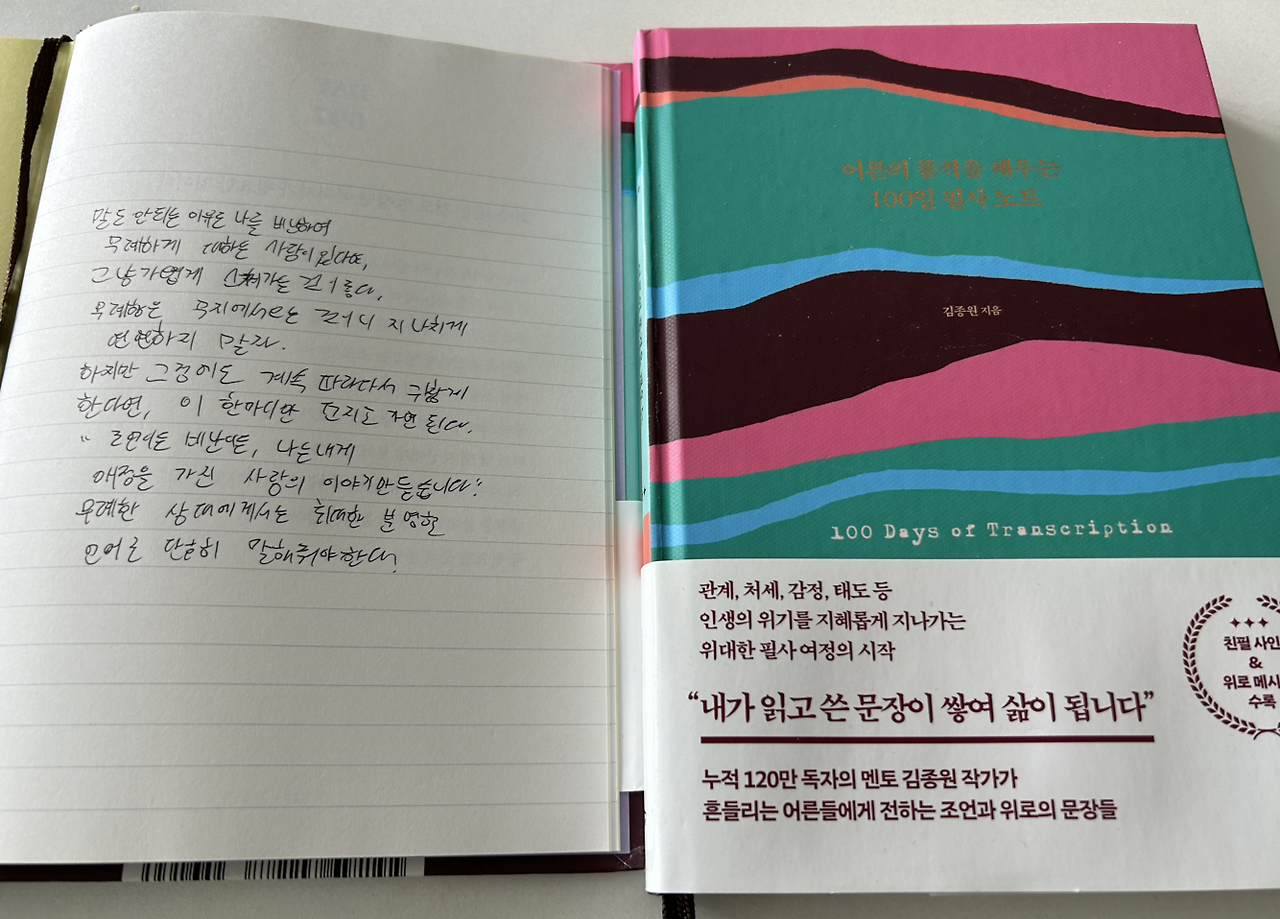 말도 안되는 이유로 나를 비난하며
무례하게 대하는 사람이 있다면,
그냥 가볍게 스쳐가는 건 어떨까,
무례함은 무지에서 오는 것이니 지나치게
연연하지 말라.
하지만 그럼에도 계속 따라다녀서 구박하게
한다면, 이 한마디만 던지면 된다.
“조언이든 비난이든, 나는 내게
애정을 가진 사람의 이야기만 듣습니다.”
무례한 상대에게서는 최대한 분명한
언어로 단단히 말해줘야 한다.
어른의 품격을 채우는
100일 필사 노트
김종원 지음
100 Days of Transcription
관계, 처세, 감정, 태도 등
인생의 위기를 지혜롭게 지나가는
위대한 필사 여정의 시작
“내가 읽고 쓴 문장이 쌓여 삶이 됩니다”
누적 120만 독자의 멘토 김종원 작가가
흔들리는 어른들에게 전하는 조언과 위로의 문장들
친필 사인
&
위로 메시
수록